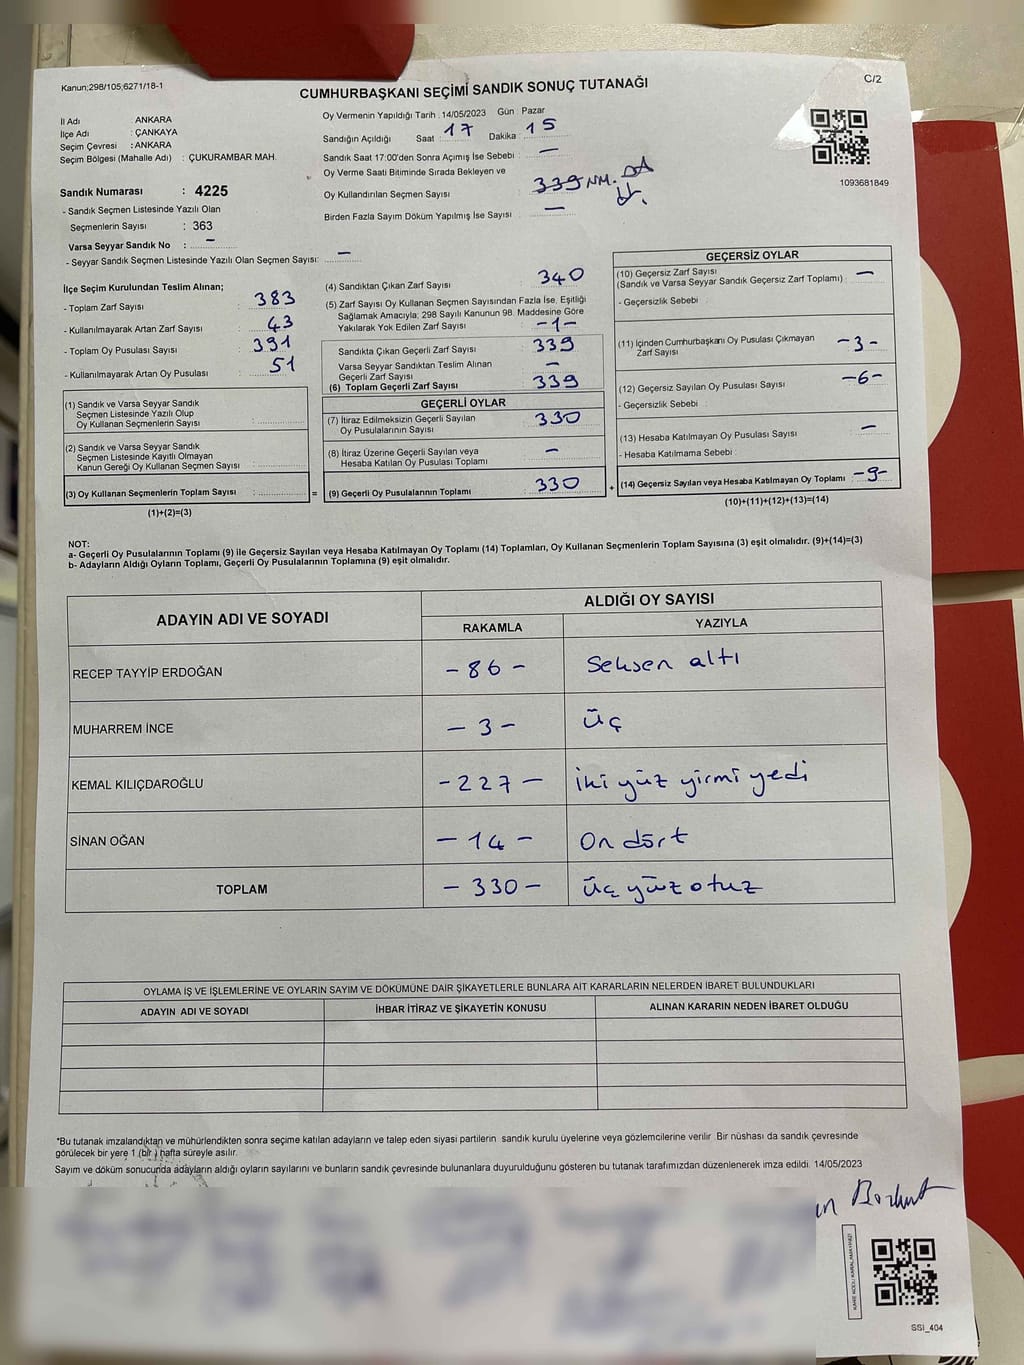 Kanun;298/105;6271/18-1
CUMHURBAŞKANI SEÇİMİ SANDIK SONUÇ TUTANAĞI
C/2
İl Adı ANKARA
İlçe Adı : ÇANKAYA
Seçim Çevresi : ANKARA
Seçim Bölgesi (Mahalle Adı) : ÇUKURAMBAR MAH.
Sandık Numarası : 4225
- Sandık Seçmen Listesinde Yazılı Olan
Seçmenlerin Sayısı : 363
Varsa Seyyar Sandık No : –
- Seyyar Sandık Seçmen Listesinde Yazılı Olan Seçmen Sayısı: –
Oy Vermenin Yapıldığı Tarih : 14/05/2023 Gün : Pazar
Sandığın Açıldığı Saat : 17 Dakika : 15
Sandık Saat 17:00'den Sonra Açımış İse Sebebi : –
Oy Verme Saati Bitiminde Sırada Bekleyen ve
Oy Kullandırılan Seçmen Sayısı : 339
Birden Fazla Sayım Döküm Yapılmış İse Sayısı : –
1093681849
İlçe Seçim Kurulundan Teslim Alınan;
- Toplam Zarf Sayısı : 383
- Kullanılmayarak Artan Zarf Sayısı : 43
- Toplam Oy Pusulası Sayısı : 391
- Kullanılmayarak Artan Oy Pusulası : 51
(1) Sandık ve Varsa Seyyar Sandık
Seçmen Listesinde Yazılı Olup
Oy Kullanan Seçmenlerin Sayısı :
(2) Sandık ve Varsa Seyyar Sandık
Seçmen Listesinde Kayıtlı Olmayan
Kanun Gereği Oy Kullanan Seçmen Sayısı :
(3) Oy Kullanan Seçmenlerin Toplam Sayısı : =
(1)+(2)=(3)
(4) Sandıktan Çıkan Zarf Sayısı : 340
(5) Zarf Sayısı Oy Kullanan Seçmen Sayısından Fazla İse, Eşitliği
Sağlamak Amacıyla; 298 Sayılı Kanunun 98. Maddesine Göre
Yakılarak Yok Edilen Zarf Sayısı : -1-
Sandıkta Çıkan Geçerli Zarf Sayısı : 339
Varsa Seyyar Sandıktan Teslim Alınan
Geçerli Zarf Sayısı : –
(6) Toplam Geçerli Zarf Sayısı : 339
GEÇERLİ OYLAR
(7) İtiraz Edilmeksizin Geçerli Sayılan
Oy Pusulalarının Sayısı : 330
(8) İtiraz Üzerine Geçerli Sayılan veya
Hesaba Katılan Oy Pusulası Toplamı : –
(9) Geçerli Oy Pusulalarının Toplamı : 330 +
GEÇERSİZ OYLAR
(10) Geçersiz Zarf Sayısı
(Sandık ve Varsa Seyyar Sandık Geçersiz Zarf Toplamı) : –
- Geçersizlik Sebebi :
(11) İçinden Cumhurbaşkanı Oy Pusulası Çıkmayan
Zarf Sayısı : -3-
(12) Geçersiz Sayılan Oy Pusulası Sayısı : -6-
- Geçersizlik Sebebi :
(13) Hesaba Katılmayan Oy Pusulası Sayısı : –
- Hesaba Katılmama Sebebi :
(14) Geçersiz Sayılan veya Hesaba Katılmayan Oy Toplamı : -9-
(10)+(11)+(12)+(13)=(14)
NOT:
a- Geçerli Oy Pusulalarının Toplamı (9) ile Geçersiz Sayılan veya Hesaba Katılmayan Oy Toplamı (14) Toplamları, Oy Kullanan Seçmenlerin Toplam Sayısına (3) eşit olmalıdır. (9)+(14)=(3)
b- Adayların Aldığı Oyların Toplamı, Geçerli Oy Pusulalarının Toplamına (9) eşit olmalıdır.
ADAYIN ADI VE SOYADI
ALDIĞI OY SAYISI
RAKAMLA YAZIYLA
RECEP TAYYİP ERDOĞAN - 86 - Seksen altı
MUHARREM İNCE - 3 - üç
KEMAL KILIÇDAROĞLU - 227 - iki yüz yirmi yedi
SİNAN OĞAN - 14 - On dört
TOPLAM - 330 - üç yüz otuz
OYLAMA İŞ VE İŞLEMLERİNE VE OYLARIN SAYIM VE DÖKÜMÜNE DAİR ŞİKAYETLERLE BUNLARA AİT KARARLARIN NELERDEN İBARET BULUNDUKLARI
ADAYIN ADI VE SOYADI İHBAR İTİRAZ VE ŞİKAYETİN KONUSU ALINAN KARARIN NEDEN İBARET OLDUĞU
*Bu tutanak imzalandıktan ve mühürlendikten sonra seçime katılan adayların ve talep eden siyasi partilerin sandık kurulu üyelerine veya gözlemcilerine verilir. Bir nüshası da sandık çevresinde
görülecek bir yere 1 (bir ) hafta süreyle asılır.
Sayım ve döküm sonucunda adayların aldığı oyların sayılarını ve bunların sandık çevresinde bulunanlara duyurulduğunu gösteren bu tutanak tarafımızdan düzenlenerek imza edildi. 14/05/2023
Bozkurt
SSİ_404